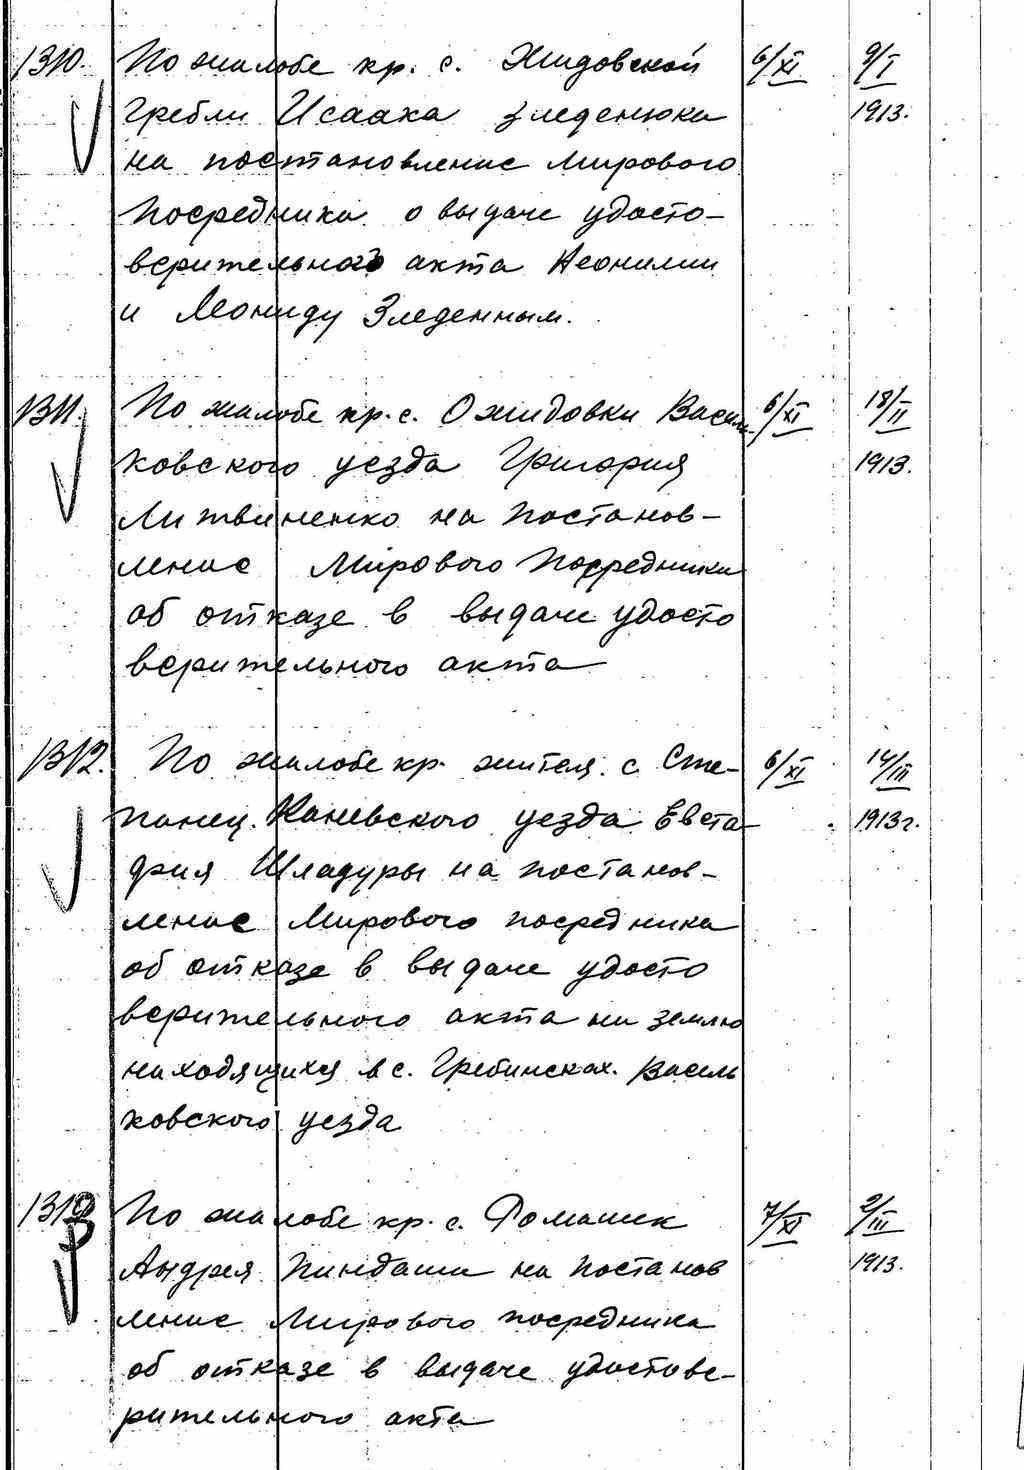 1310. По жалобе кр. с. Жидовской 6/XI 9/I
Гребли Исаака Зледенюка 1913.
на постановление Мирового
Посредника о выдаче удосто-
верительного акта Неонилии
и Леониду Зледенным.
1311. По жалобе кр. с. Ожидовки Василь- 6/XI 18/II
ковского уезда Григория 1913.
Литвиненко на постанов-
ление Мирового Посредника
об отказе в выдаче удосто
верительного акта
1312. По жалобе кр. жител. с. Сте- 6/XI 14/III
панец. Каневского уезда Евста- 1913 г.
фия Шладуры на постанов-
ление Мирового посредника
об отказе в выдаче удосто
верительного акта на землю
находящихся в с. Гребинсках. Василь
ковского уезда
1313 По жалобе кр. с. Ромашек 7/XI 2/III
Андрея Пиндаши на постанов 1913.
ление Мирового посредника
об отказе в выдаче удостове-
рительного акта